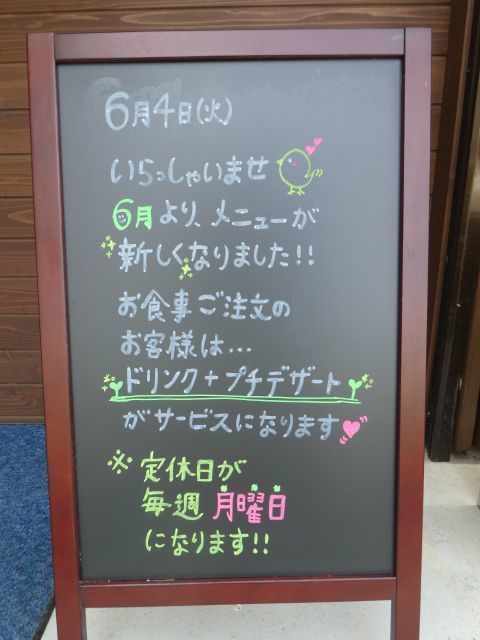 6月4日(火)
いらっしゃいませ
6月より、メニューが
新しくなりました!!
お食事ご注文の
お客様は…
ドリンク+プチデザート
がサービスになります
※定休日が
毎週月曜日
になります!!